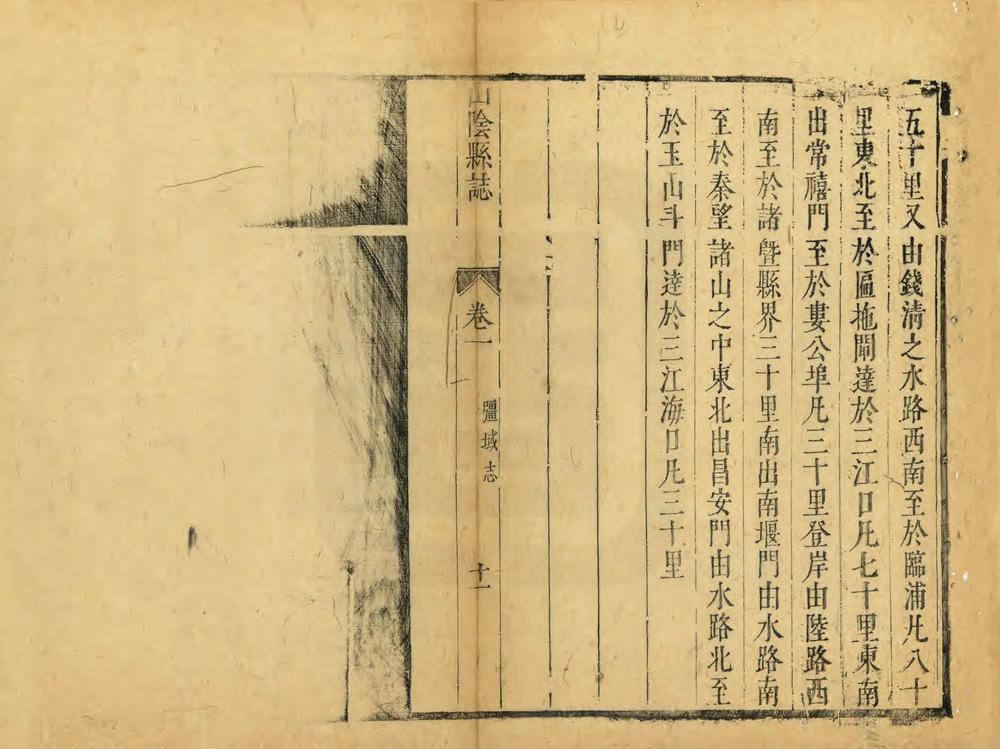 五十里又由錢清之水路西南至於臨浦凡八十
里東北至於匾拖閘達於三江口凡七十里東南
出常禧門至於婁公埠凡三十里登岸由陸路西
南至於諸暨縣界三十里南出南堰門由水路南
至於秦望諸山之中東北出昌安門由水路北至
於玉山斗門達於三江海口凡三十里
山陰縣誌
卷一
疆域志
十一